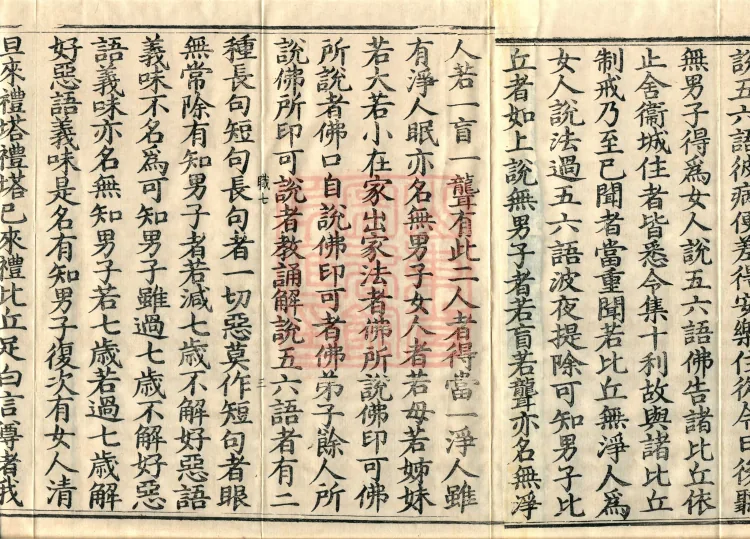 說五六語彼病便差得安樂住從今日後聽
無男子得為女人說五六語佛告諸比丘依
止舍衞城住者皆悉令集十利故與諸比丘
制戒乃至已聞者當重聞若比丘無淨人為
女人說法過五六語波夜提除可知男子比
丘者如上說無男子者若盲若聾亦名無淨
人若一盲一聾有此二人者得當一淨人雖
有淨人眠亦名無男子女人者若母若姊妹
若大若小在家出家法者佛所說佛印可佛
所說者佛口自說佛印可者佛弟子餘人所
說佛所印可說者教誦解說五六語者有二
職七 三
種長句短句長句者一切惡莫作短句者眼
無常除有知男子者若減七歲不解好惡語
義味不名為可知男子雖過七歲不解好惡
語義味亦名無知男子若七歲若過七歲解
好惡語義味是名有知男子復次有女人清
旦來禮塔禮塔已來禮比丘足白言尊者我